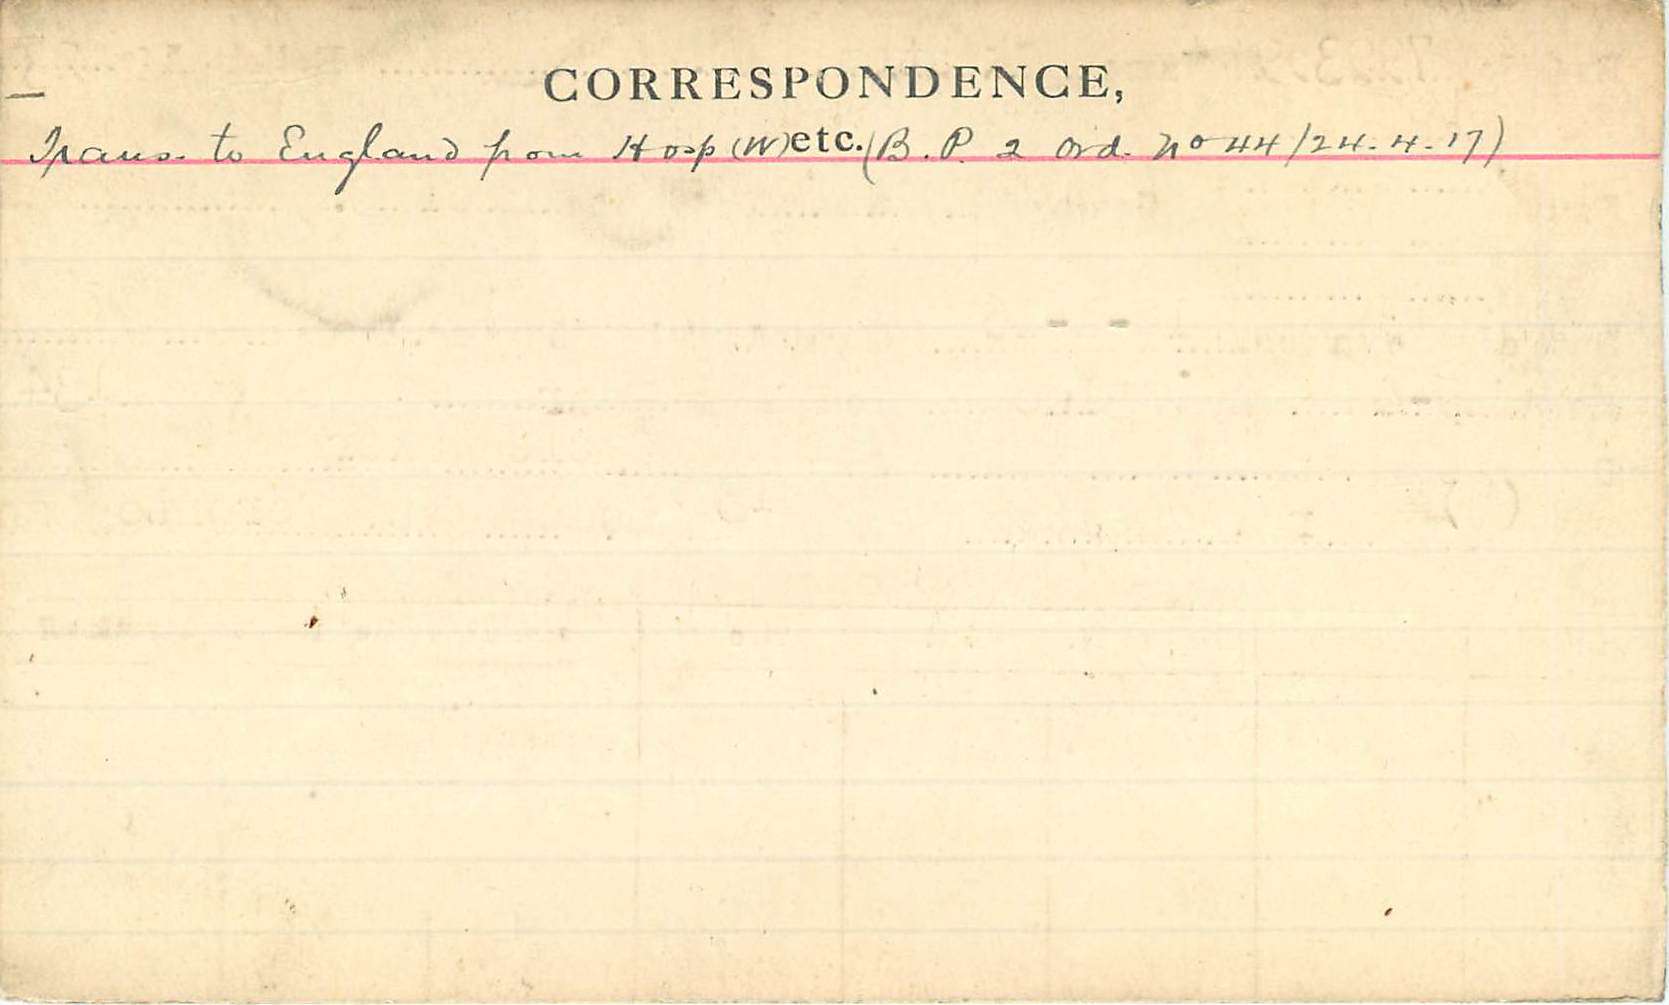 CORRESPONDENCE,
etc.
Trans. to England from Hosp (W) (B. P. 2 Ord. No 44/24.4.17)